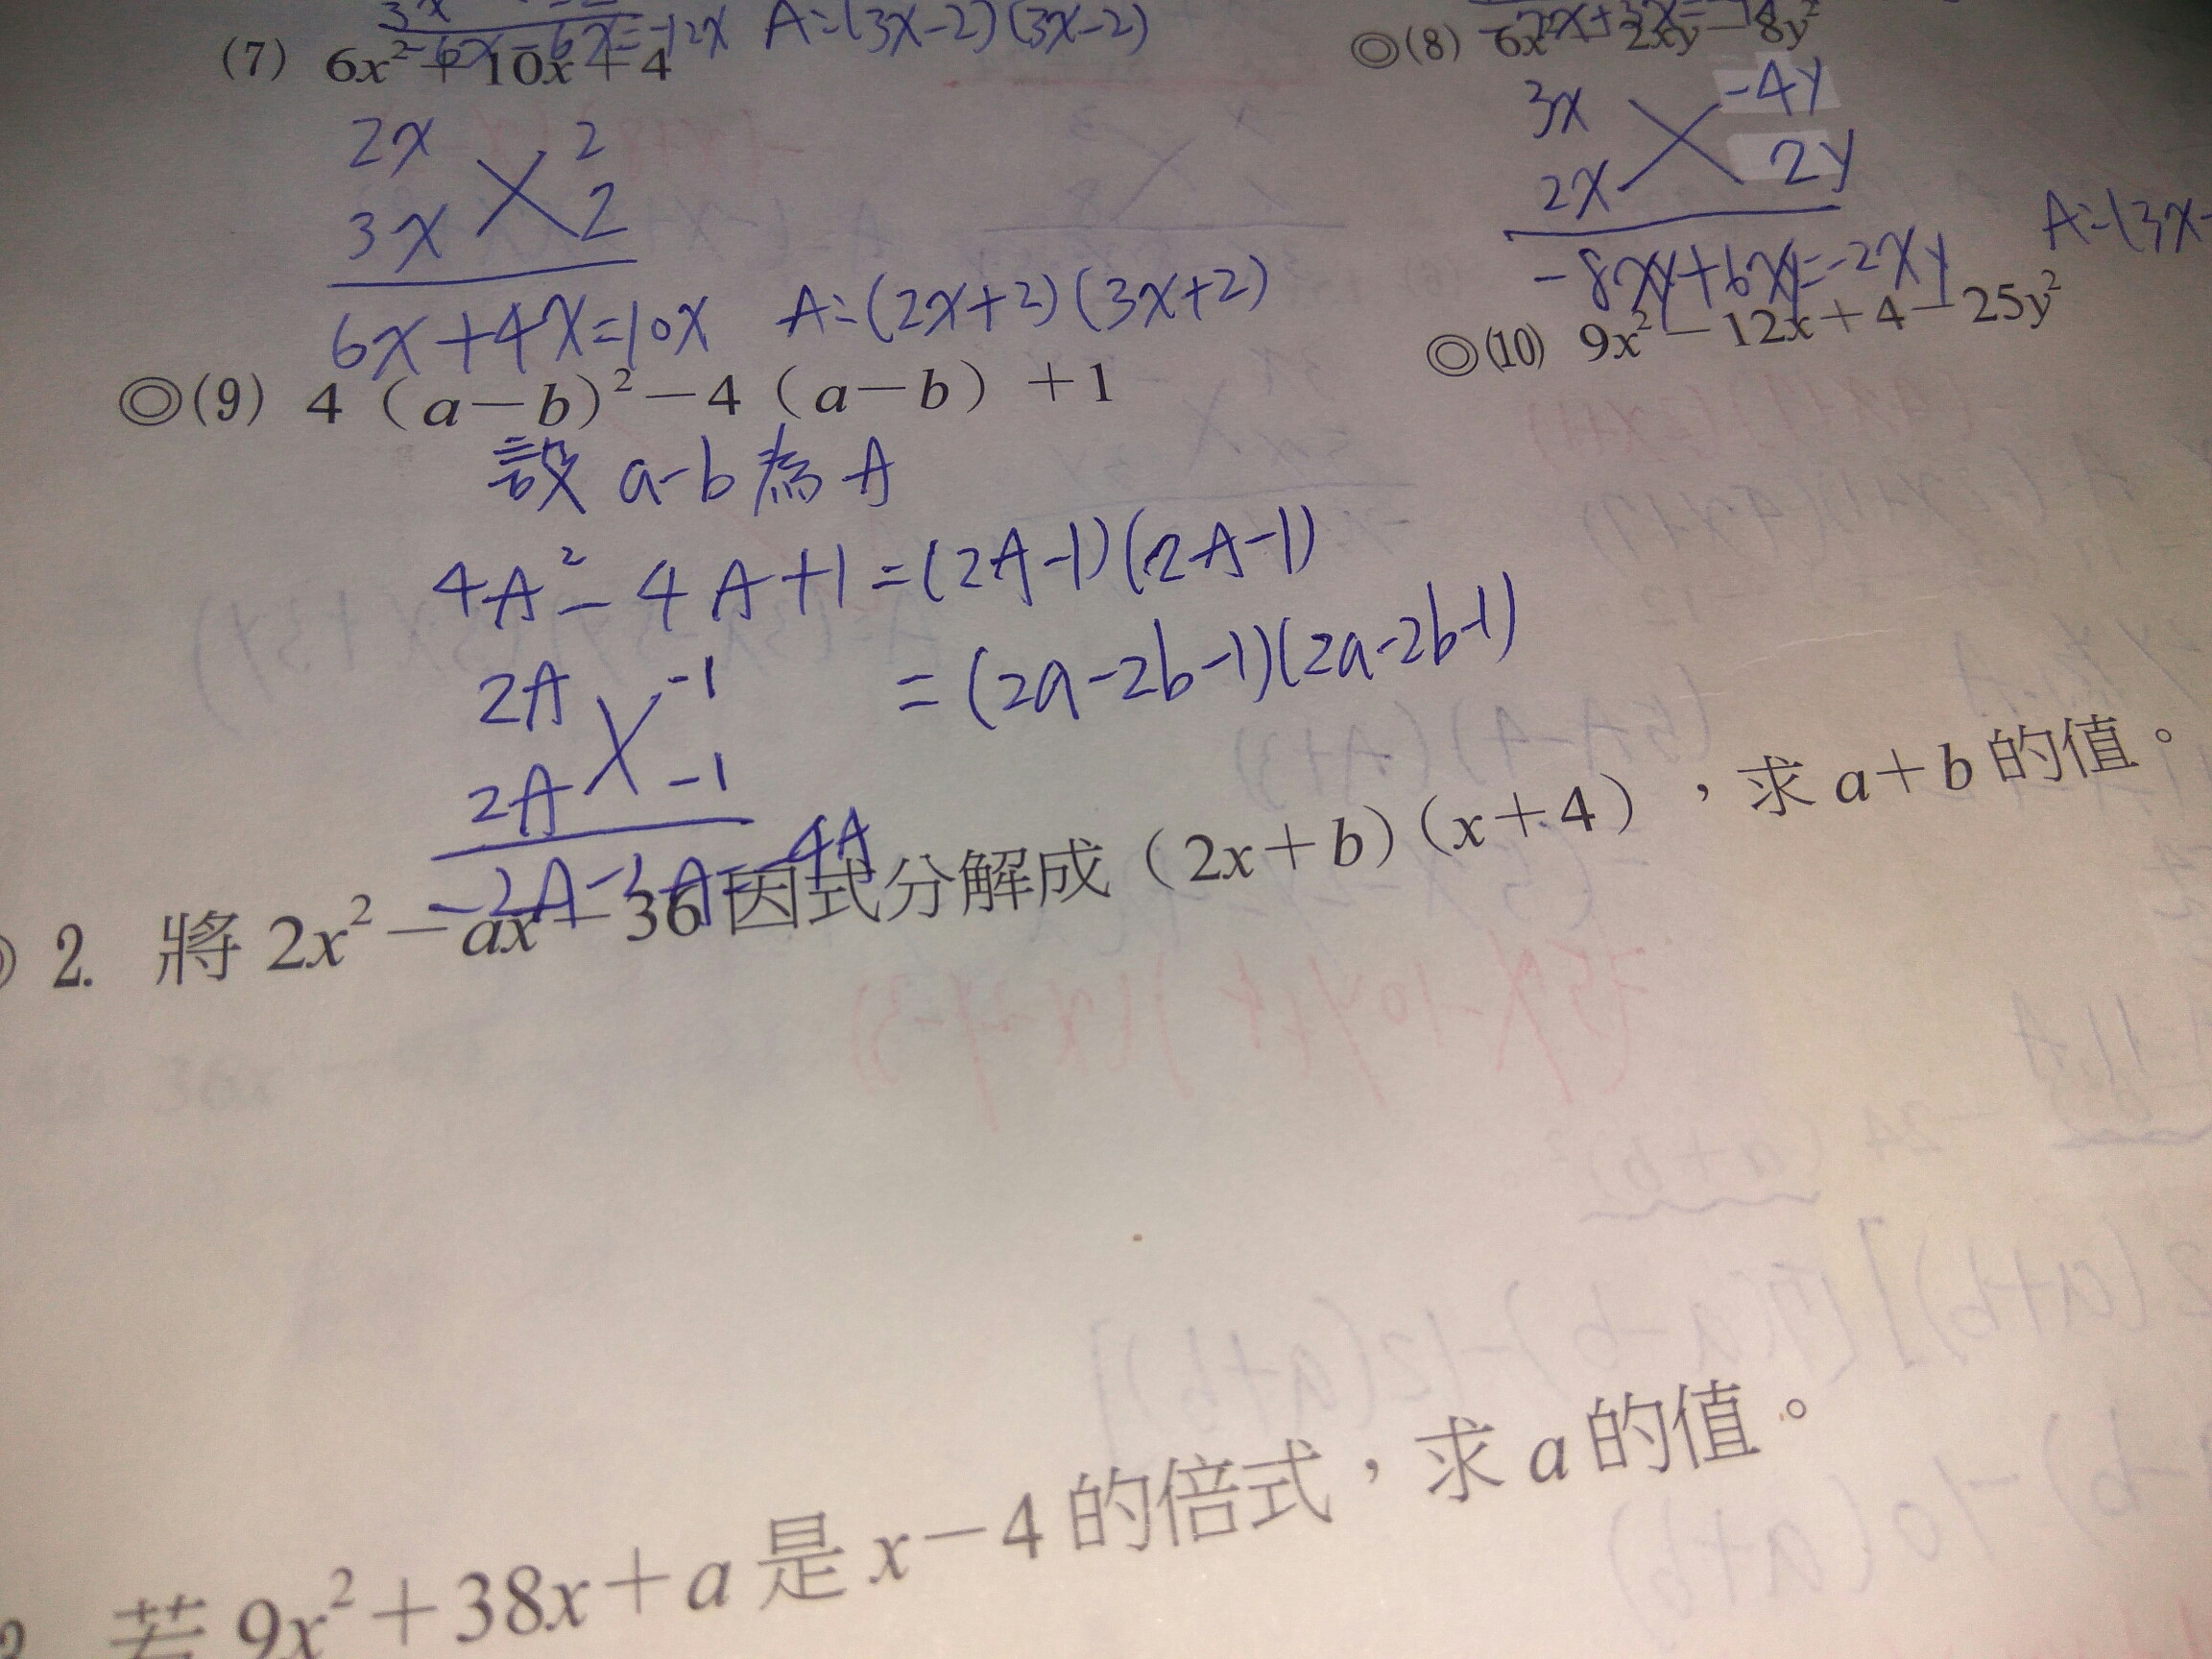 3x
-6x-6x=-12x A:(3x-2)(3x-2)
(7) 6x²+10x+4
2x 2
3x 2
6x+4x=10x A:(2x+2)(3x+2)
◎(8) 6x²-2xy-8y²
3x -4y
2x 2y
-8xy+6xy=-2xy A:(3x-
◎(9) 4(a-b)²-4(a-b)+1
設 a-b 為 A
4A²-4A+1=(2A-1)(2A-1)
=(2a-2b-1)(2a-2b-1)
2A -1
2A -1
-2A-2A=-4A
◎(10) 9x²-12x+4-25y²
2. 將 2x²-ax-36 因式分解成(2x+b)(x+4),求 a+b 的值。
若 9x²+38x+a 是 x-4 的倍式,求 a 的值。